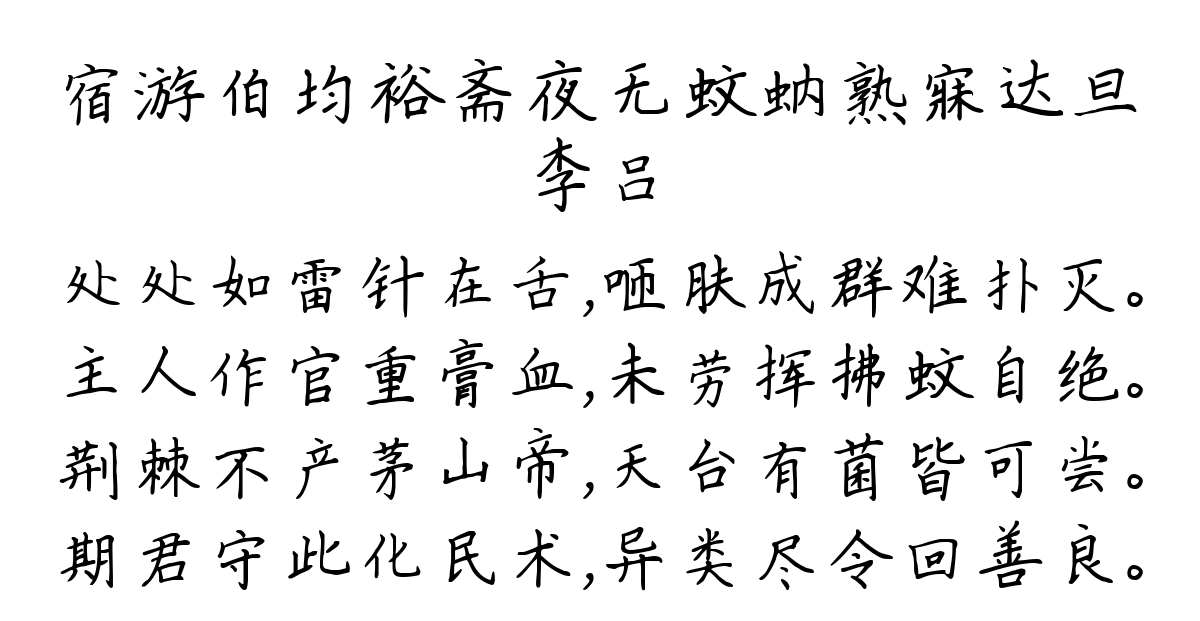 宿游伯均裕斋夜无蚊蚋熟寐达旦
李吕
处处如雷针在舌,咂肤成群难扑灭。
主人作官重膏血,未劳挥拂蚊自绝。
荆棘不产茅山帝,天台有菌皆可尝。
期君守此化民术,异类尽令回善良。